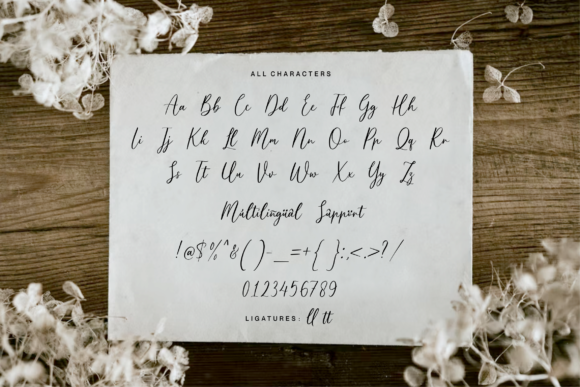 ALL CHARACTERS
Aa Bb Cc Dd Ee Ff Gg Hh
Ii Jj Kk Ll Mm Nn Oo Pp Qq Rr
Ss Tt Uu Vv Ww Xx Yy Zz
Mùltilingüàl Sùppört
!@$%^&()-_=+{}:,<.>?/
0123456789
LIGATURES: ll tt